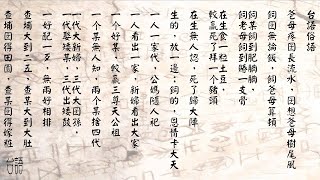 台語俗語
爸母疼囝長流水，囝想爸母樹尾風
飼囝無論飯，飼爸母算頓
飼某飼到肥腩腩
飼老母飼到賰一支骨
在生食一粒土豆
較贏死了拜一个豬頭
在生無人認，死了歸大陣
生的，放一邊；飼的，恩情卡大天
一人一家代，公媽隨人祀
一人看出一家，新婦看出大家
一个好某，較贏三尊天公祖
一个某無人知，兩个某捨四代
一代大新婦，三代大囝孫
一代娶矮某，三代出矮鼓
一好配一歹，無兩好相排
查埔大到二五，查某大到大肚
查埔囝得田園，查某囝得嫁粧
台語